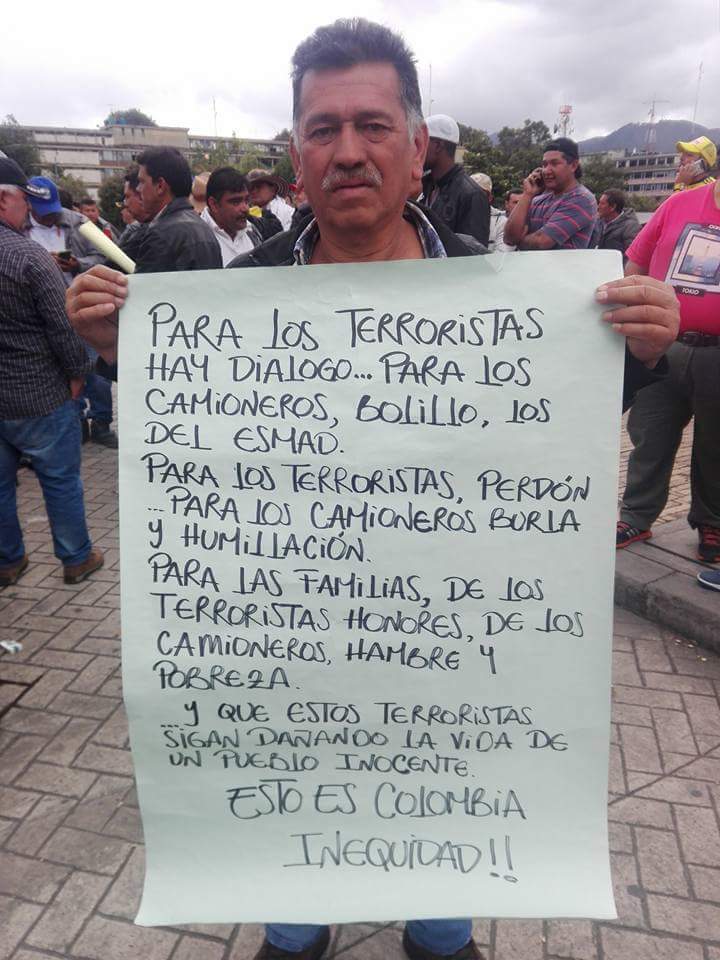 PARA LOS TERRORISTAS
HAY DIALOGO... PARA LOS
CAMIONEROS, BOLILLO, LOS
DEL ESMAD.
PARA LOS TERRORISTAS, PERDÓN
...PARA LOS CAMIONEROS BURLA
Y HUMILLACIÓN.
PARA LAS FAMILIAS, DE LOS
TERRORISTAS HONORES, DE LOS
CAMIONEROS, HAMBRE Y
POBREZA.
...Y QUE ESTOS TERRORISTAS
SIGAN DAÑANDO LA VIDA DE
UN PUEBLO INOCENTE.
ESTO ES COLOMBIA
INEQUIDAD!!
TOKIO